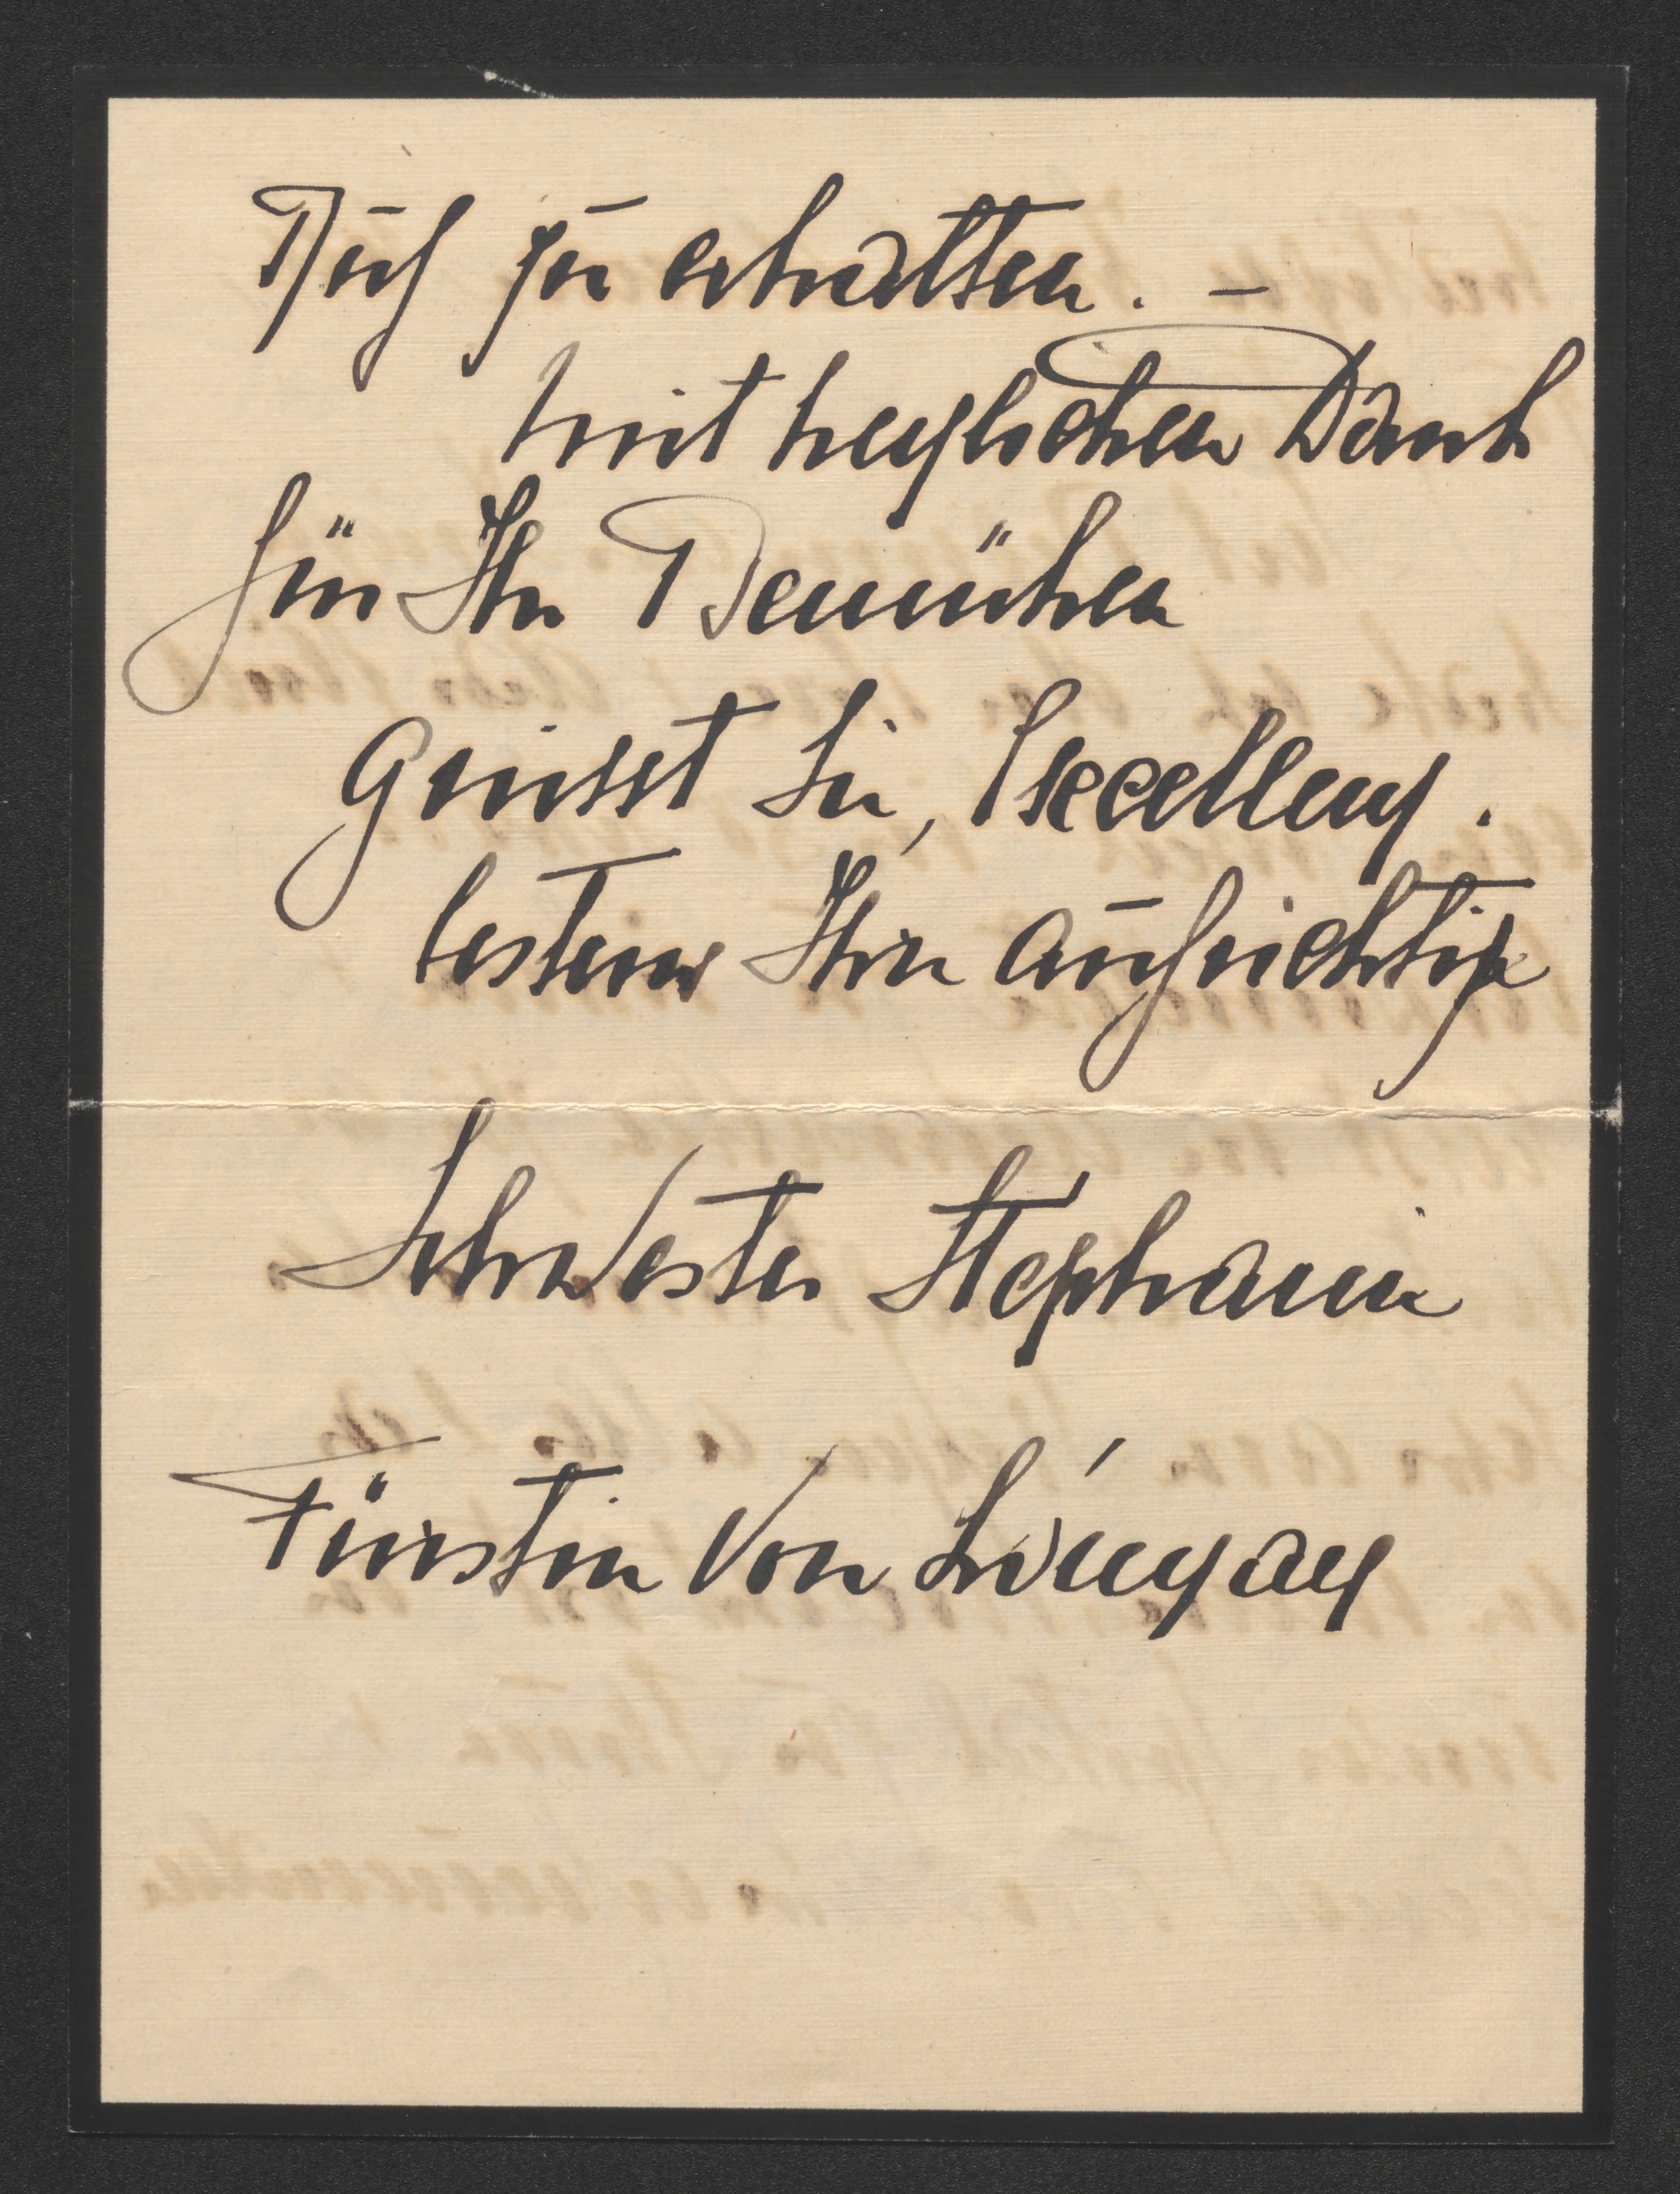 Buch zu erhalten. –
Mit herzlichen Dank
für Ihr Bemühen
Grüsst Sie, Excellenz.
bestens Ihre aufrichtige
Schwester Stephanie
Fürstin von Lónyay